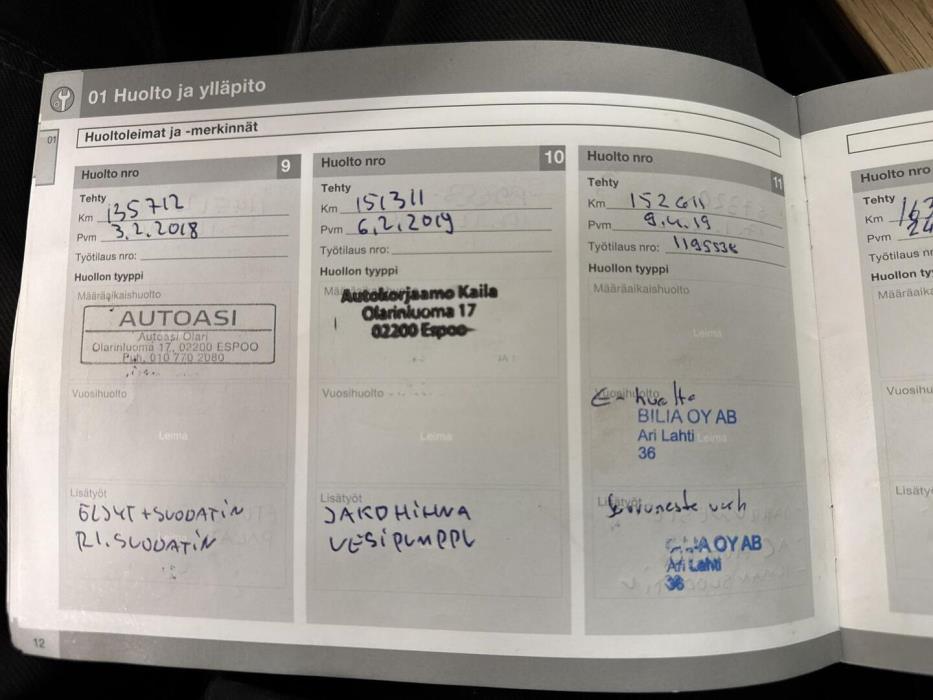 01 Huolto ja ylläpito
01
Huoltoleimat ja -merkinnät
Huolto nro 9
Tehty
Km 135712
Pvm 3.2.2018
Työtilaus nro:
Huollon tyyppi
Määräaikaishuolto
AUTOASI
Autoasi Olari
Olarinluoma 17, 02200 ESPOO
Puh. 010 770 2080
Vuosihuolto
Leima
Lisätyöt
ÖLJYT + SUODATIN
RI. SUODATIN
Huolto nro 10
Tehty
Km 151311
Pvm 6.2.2019
Työtilaus nro:
Huollon tyyppi
Autokorjaamo Kaila
Olarinluoma 17
02200 Espoo
Vuosihuolto
Leima
Lisätyöt
JAKOHIHNA
VESIPUMPPU
Huolto nro 11
Tehty
Km
Pvm 9.4.19
Työtilaus nro:
Huollon tyyppi
Määräaikaishuolto
Leima
Vuosihuolto
-huolto
BILIA OY AB
Ari Lahti
Leima
36
Lisätyöt
BILIA OY AB
Ari Lahti
36
12
Huolto nro
Tehty
Km
Pvm
Työtilaus